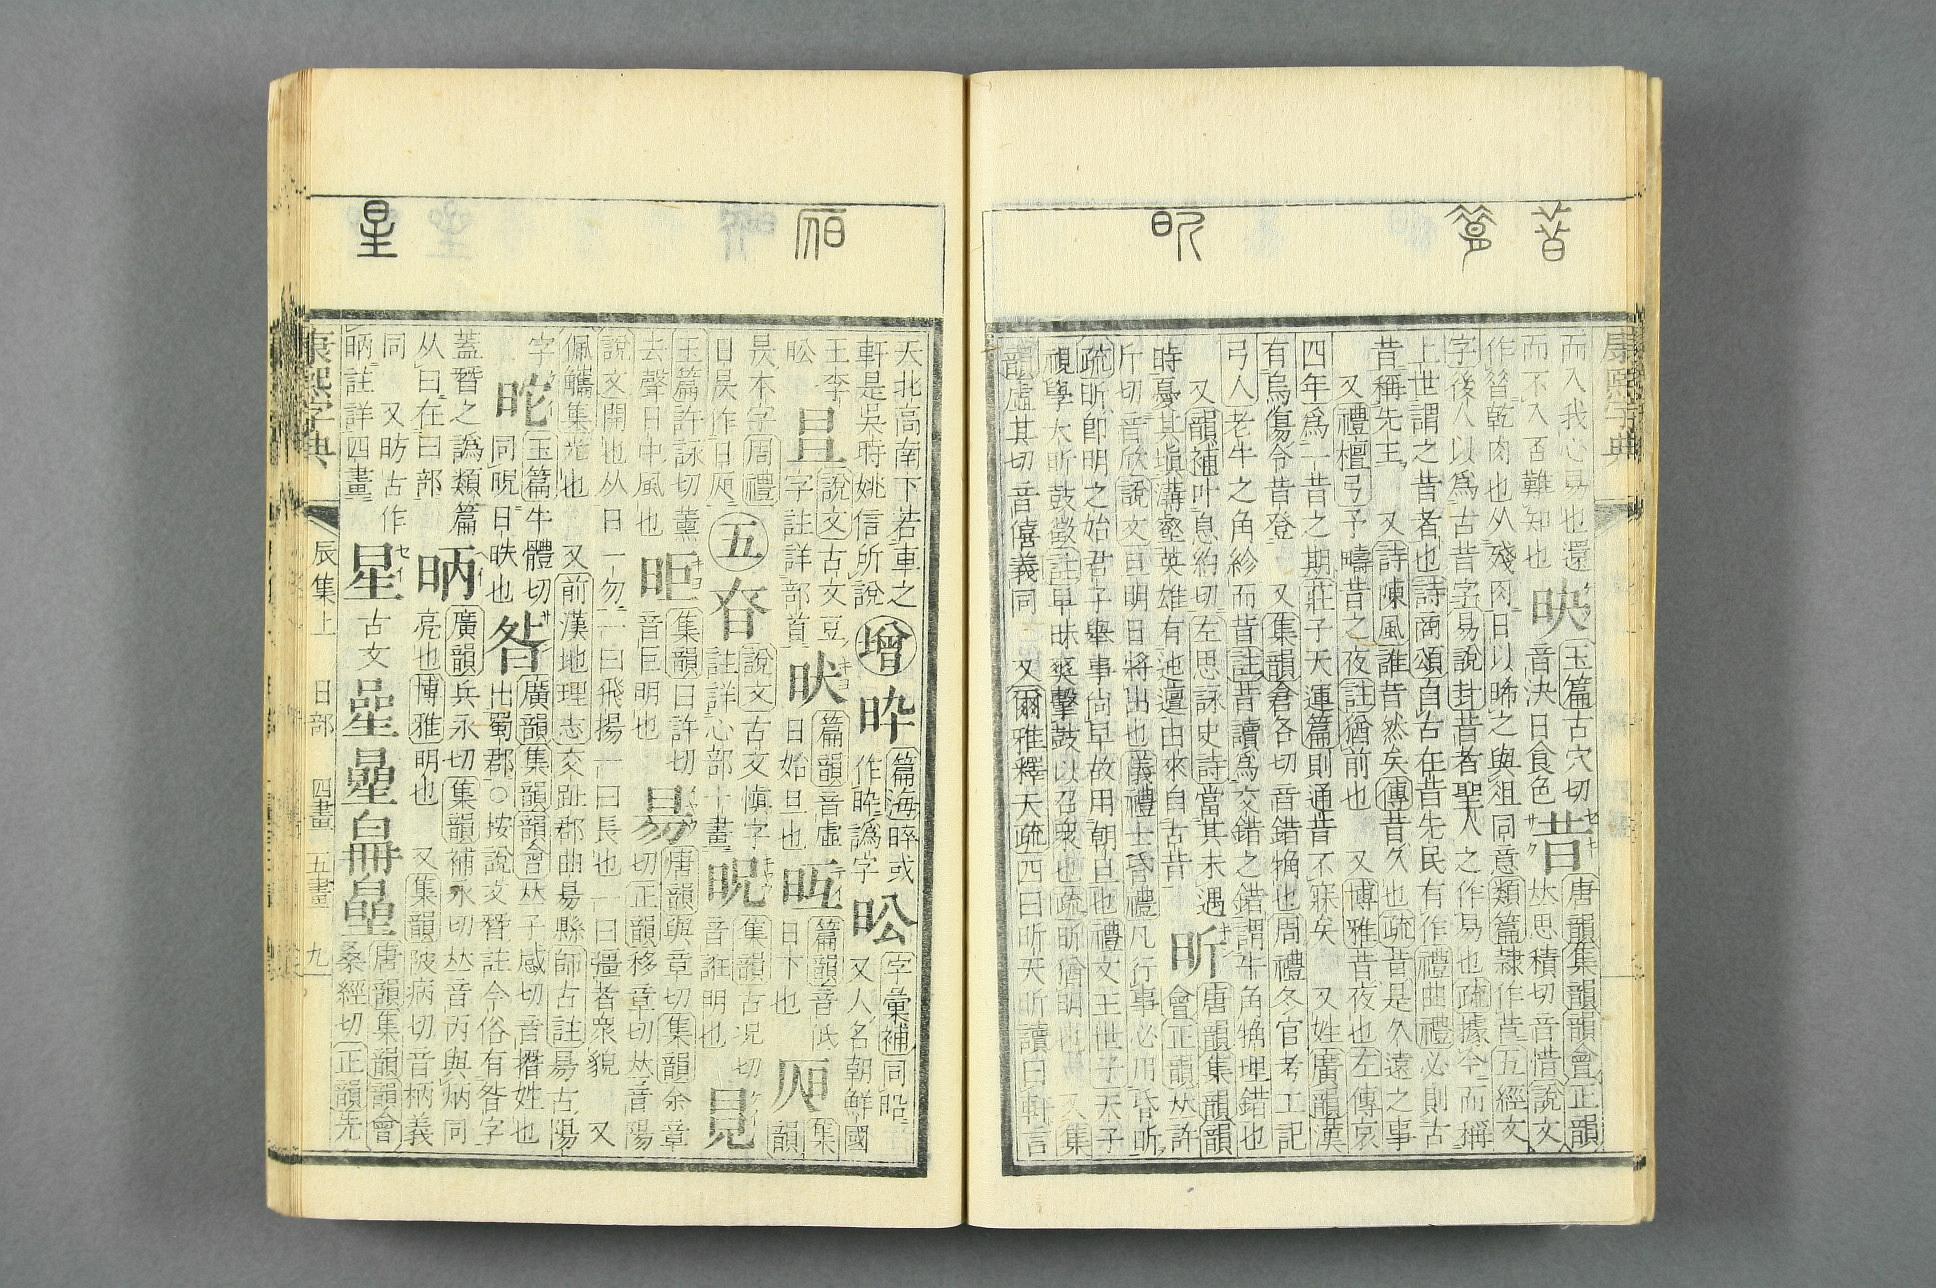 昔
昕
康熙字典
而入我心易也還
而不入否難知也
玉篇古穴切
音決日食色
昔
唐韻集韻韻會正韻
𠀤思積切音惜說文
作𦠡乾肉也从殘肉日以晞之與俎同意類篇隷作昔五經文
字後人以爲古昔字易說卦昔者聖人之作易也疏據今而稱
上世謂之昔者也詩商頌自古在昔先民有作禮曲禮必則古
昔稱先王 又詩陳風誰昔然矣傳昔久也疏昔是久遠之事
又禮檀弓予疇昔之夜註猶前也 又博雅昔夜也左傳哀
四年爲一昔之期莊子天運篇則通昔不寐矣 又姓廣韻漢
有烏傷令昔登 又集韻倉各切音錯觕也周禮冬官考工記
弓人老牛之角紾而昔註昔讀爲交錯之錯謂牛角觕理錯也
又韻補叶息約切左思詠史詩當其未遇
時憂其塡溝壑英雄有迍邅由來自古昔
昕
唐韻集韻韻
會正韻𠀤許
斤切音欣說文旦明日將出也儀禮士昏禮凡行事必用昏昕
疏昕卽明之始君子舉事尚早故用朝旦也禮文王世子天子
視學大昕鼓徵註早昧爽擊鼓以召衆也疏昕猶明也 又集
韻虛其切音僖義同 又爾雅釋天疏四曰昕天昕讀曰軒言
星
天北高南下若車之
軒是吳時姚信所說
增
篇海晬或
作𣇃譌字
昖
字彙補同䀏
又人名朝鮮國
王李
昖
說文古文𣅀
字註詳部首
篇韻音虛
日始旦也
篇韻音氐
日下也
集
韻
昃本字周禮
日昃作日𣅔
五
昚
說文古文愼字
註詳心部十畫
昿
集韻古況切
音誑明也
玉篇許詠切薰
去聲日中風也
昛
集韻日許切
音巨明也
昜
唐韻與章切集韻余章
切正韻移章切𠀤音陽
說文開也从日一勿一曰飛揚一曰長也一曰彊者衆貌 又
佩觿集㫖也 又前漢地理志交趾郡曲昜縣師古註昜古陽
字
玉篇牛體切
同晲日昳也
昝
廣韻集韻韻會𠀤子感切音撍姓也
出蜀郡○按說文朁註今俗有昝字
蓋朁之譌類篇
从曰在曰部
昞
廣韻兵永切集韻補永切𠀤音丙與炳同
亮也博雅明也 又集韻陂病切音柄義
同 又昉古作
昞註詳四畫
星
古文
唐韻集韻韻會
桑經切正韻先
康熙字典
辰集上 日部 四畫 五畫 九